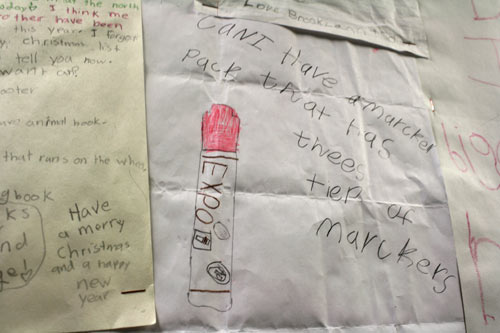 at the north
today? I think me
brother have been
this year. I forgot
my christmas list
tell you now.
want our
ooter
ave animal book.
that runs on the whee
gbook
ks
nd
ge!
Have
a merry
christmas
and a happy
new
year
Love Brook
CanI Have a marcker
pack that has
threes
tier of
marckers
EXPO